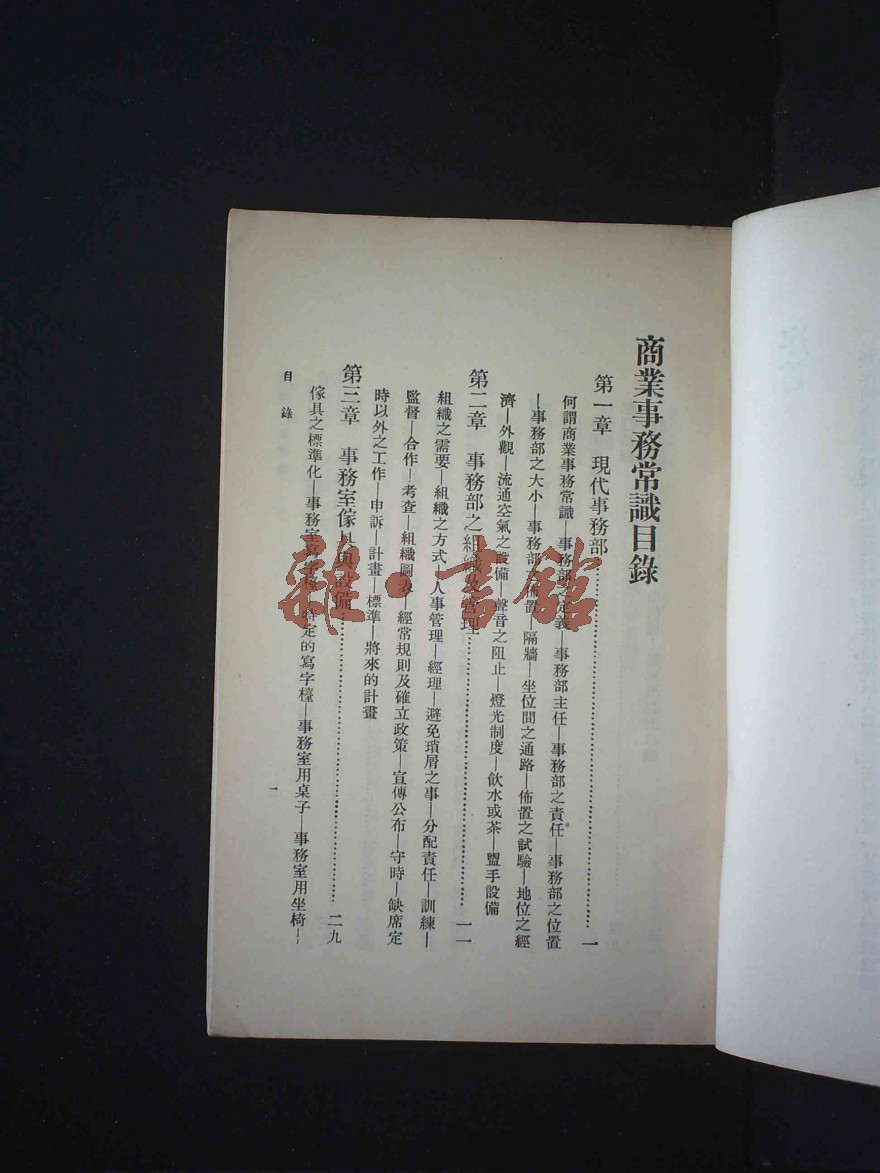 商業事務常識目錄
第一章　現代事務部……………………一
何謂商業事務常識—事務部之定義—事務部主任—事務部之責任—事務部之位置
—事務部之大小—事務部之佈置—隔牆—坐位間之通路—佈置之試驗—地位之經
濟—外觀—流通空氣之設備—聲音之阻止—燈光制度—飲水或茶—盥手設備
第二章　事務部之組織及管理……………………一一
組織之需要—組織之方式—人事管理—經理—避免瑣屑之事—分配責任—訓練—
監督—合作—考查—組織圖表—經常規則及確立政策—宣傳公布—守時—缺席定
時以外之工作—申訴—計畫—標準—將來的計畫
第三章　事務室傢具與設備……………………二九
傢具之標準化—事務室寫字檯—特定的寫字檯—事務室用桌子—事務室用坐椅—
目錄
一
雜·書館